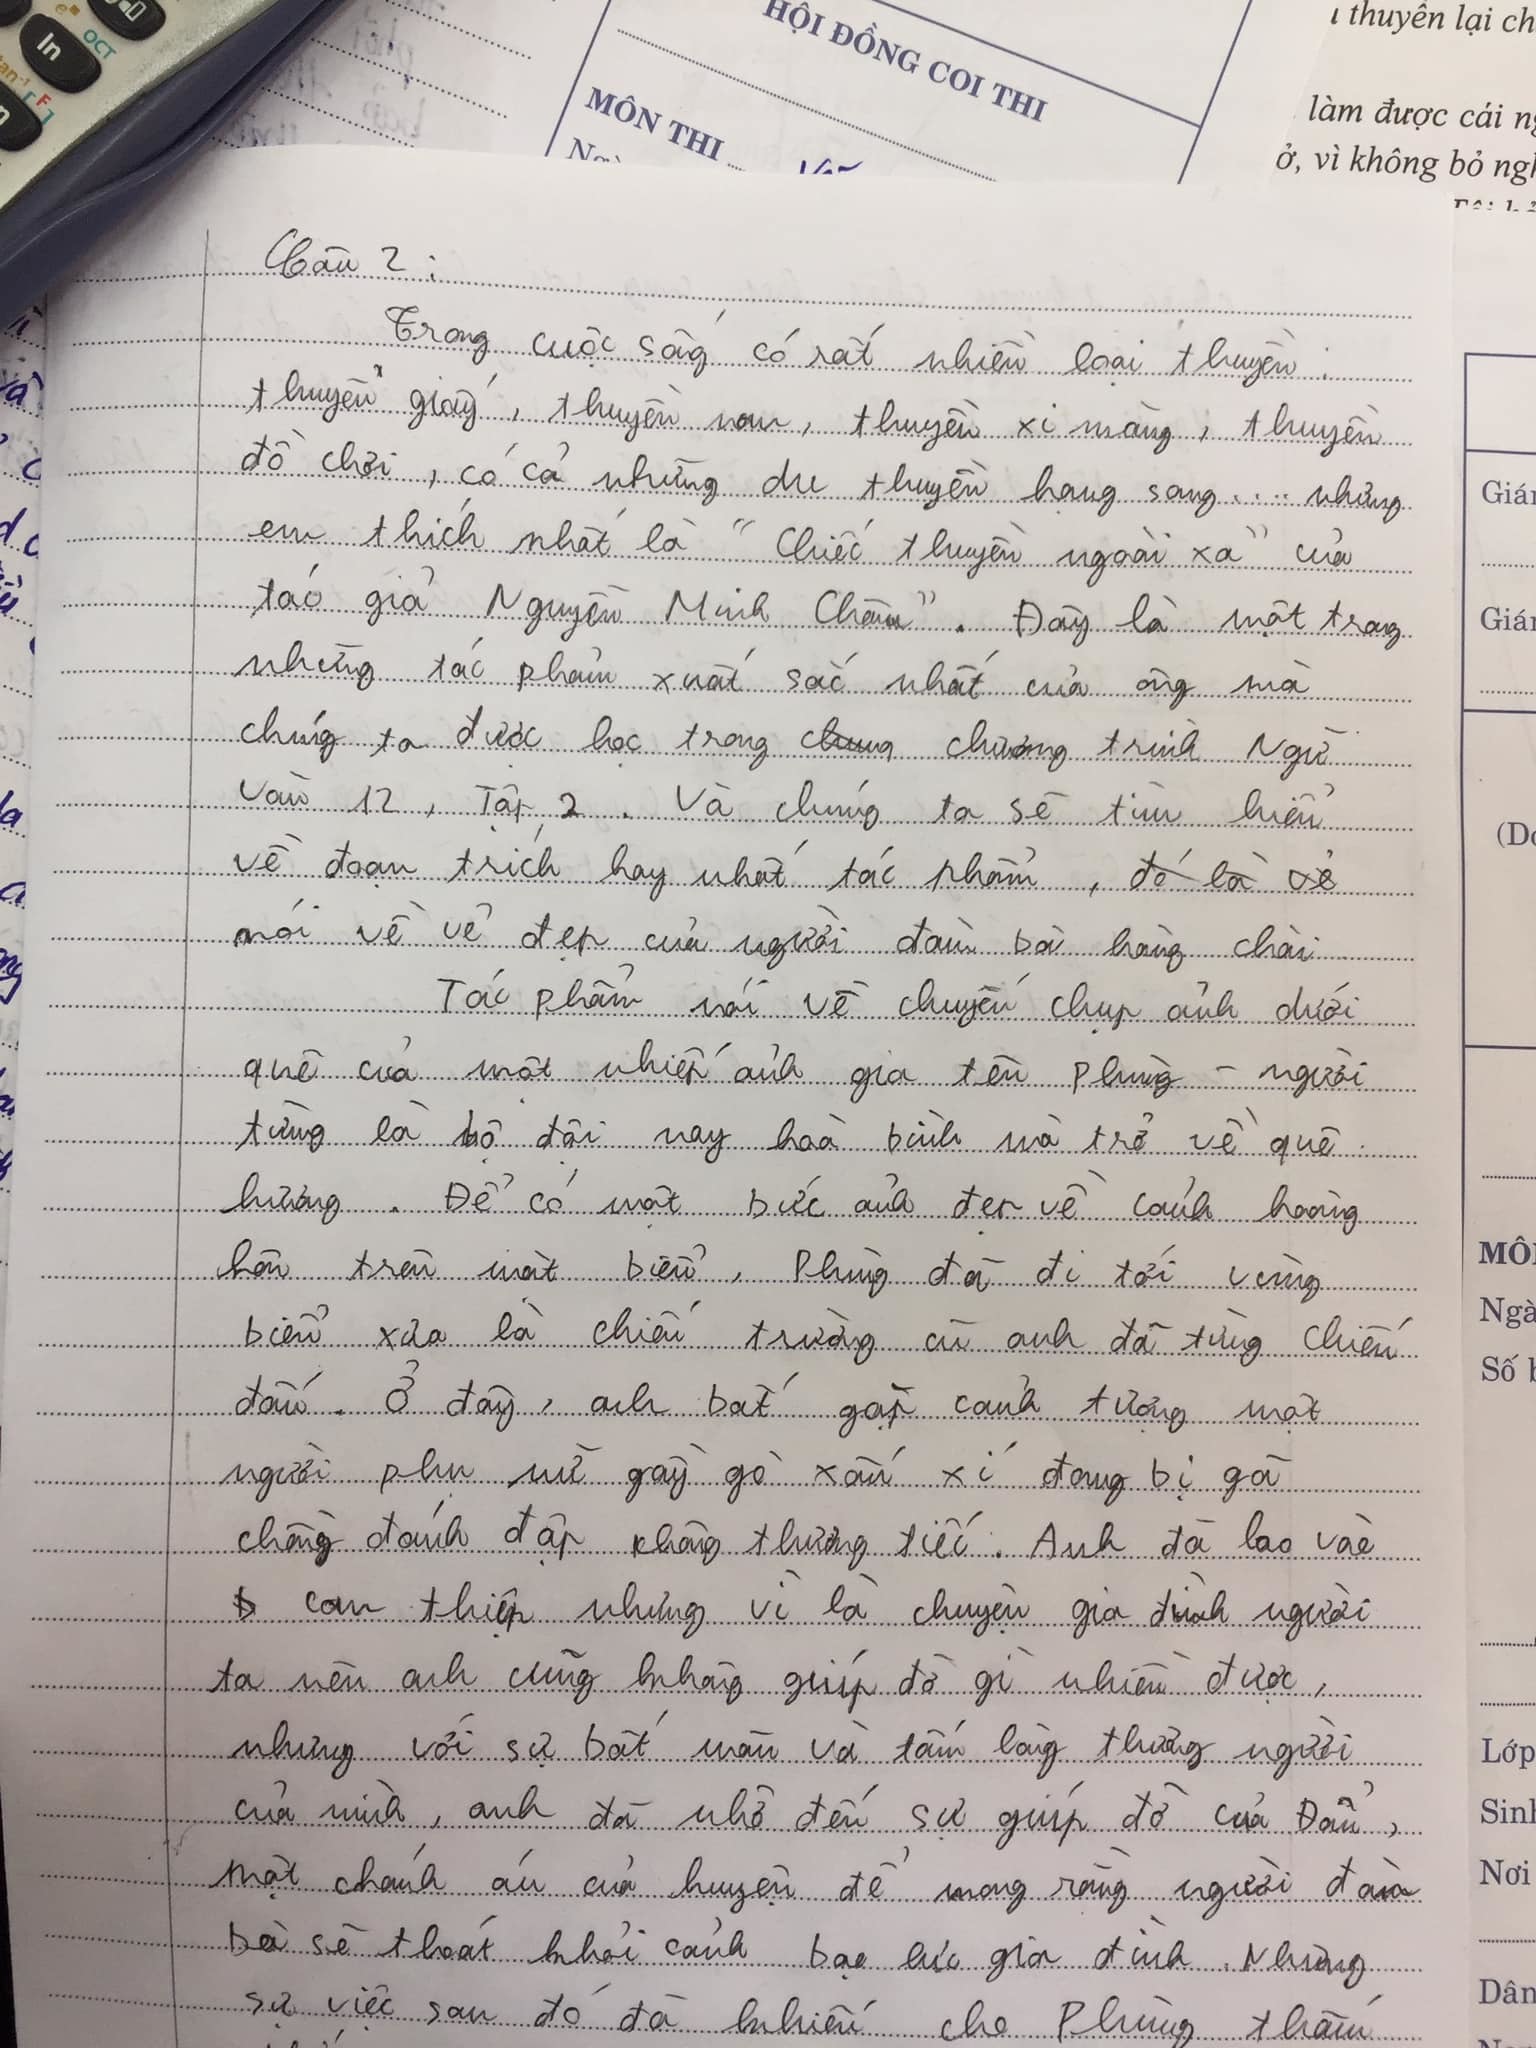 In
OCT
tan⁻¹
F
HỘI ĐỒNG COI THI
MÔN THI
thuyền lại ch
làm được cái ng
ở, vì không bỏ ngh
Câu 2 :
Trong cuộc sống có rất nhiều loại thuyền :
thuyền giấy, thuyền nan, thuyền xi măng, thuyền
đồ chơi, có cả những du thuyền hạng sang .... nhưng
em thích nhất là "Chiếc thuyền ngoài xa" của
tác giả Nguyễn Minh Châu". Đây là một trong
những tác phẩm xuất sắc nhất của ông mà
chúng ta được học trong chung chương trình Ngữ
văn 12, Tập 2. Và chúng ta sẽ tìm hiểu
về đoạn trích hay nhất tác phẩm, đó là vẻ
nói về vẻ đẹp của người đàn bà hàng chài
Tác phẩm nói về chuyến chụp ảnh dưới
quê của một nhiếp ảnh gia tên Phùng - người
từng là bộ đội nay hoà bình mà trở về quê
hương. Để có một bức ảnh đẹp về cảnh hoàng
hôn trên mặt biển, Phùng đã đi tới vùng
biển xưa là chiến trường cũ anh đã từng chiến
đấu. Ở đây, anh bắt gặp cảnh tượng một
người phụ nữ gầy gò xấu xí đang bị gã
chồng đánh đập không thương tiếc. Anh đã lao vào
can thiệp nhưng vì là chuyện gia đình người
ta nên anh cũng không giúp đỡ gì nhiều được,
nhưng với sự bất mãn và tấm lòng thương người
của mình, anh đã nhờ đến sự giúp đỡ của Đẩu,
một chánh án của huyện để mong rằng người đàn
bà sẽ thoát khỏi cảnh bạo lực gia đình. Nhưng
sự việc sau đó đã khiến cho Phùng thấm
Giá
Giá
MÔ
Ngà
Số b
Lớp
Sinh
Nơi
Dân